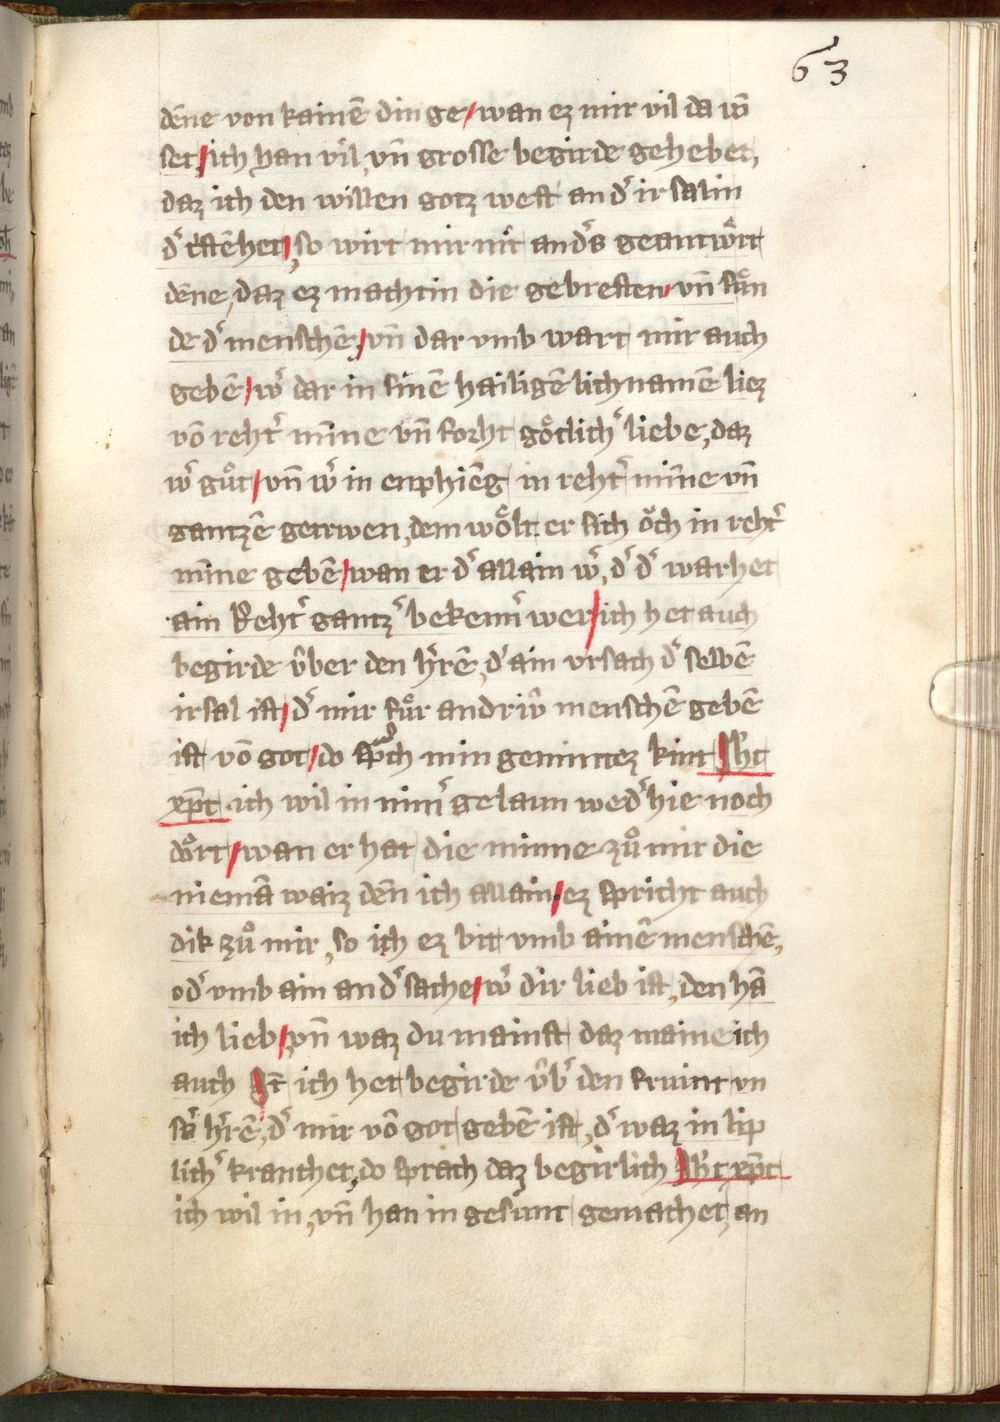 63
dēne von kainē dinge / wan ez mir vil da vō
set / ich han vil vn̄ grosse begirde gehebet,
daz ich den willen gotz west an d᾽ irsalin
d᾽ cͥstēhet / so wirt mir nit and᾽s geantwͤrt
dēne, daz ez machtin die gebresten / vn̄ sͤun
de d᾽ menschē / vn̄ dar vmb wart mir auch
gebē / w᾽ dar in sinē hailigē lichnamē liez
vō reht᾽ mīne vn̄ forht gͤotlich᾽ liebe, daz
w᾽ gůt / vn̄ w᾽ in enphieng in reht᾽ mīne vn̄
gantzē getrwen, dem wͤolt er sich ͦoch in reht᾽
mīne gebē / wan er d᾽ allain w᾽, d᾽ d᾽ warhet
ain Reht᾽ gantz᾽ bekenn᾽ wer / ich het auch
begirde v̂ber den h᾽rē, d᾽ ain vrsach d᾽ selbē
irsal ist / d᾽ mir fͤur andriv̂ menschē gebē
ist vō got / do spᷓch min geminntez kint Jh̄c
xp̄c ich wil in nim᾽ gelaun wed᾽ hie noch
dͤort / wan er hat die minne zů mir die
niemā waiz den̄ ich allain / ez spricht auch
dik zů mir, so ich ez bit vmb ainē menschē,
od᾽ vmb ain and᾽ sache / w᾽ dir lieb ist, den hā
ich lieb / vn̄ waz du mainst daz maine ich
auch It̄ ich het begirde v̂b᾽ den fruint vn
s᾽n h᾽rē, d᾽ mir vō got gebē ist, d᾽ waz in lip
lich᾽ kranchet, do sprach daz begirlich Jh̄c xp̄c
ich wil in, vn̄ han in gesunt gemachet, an